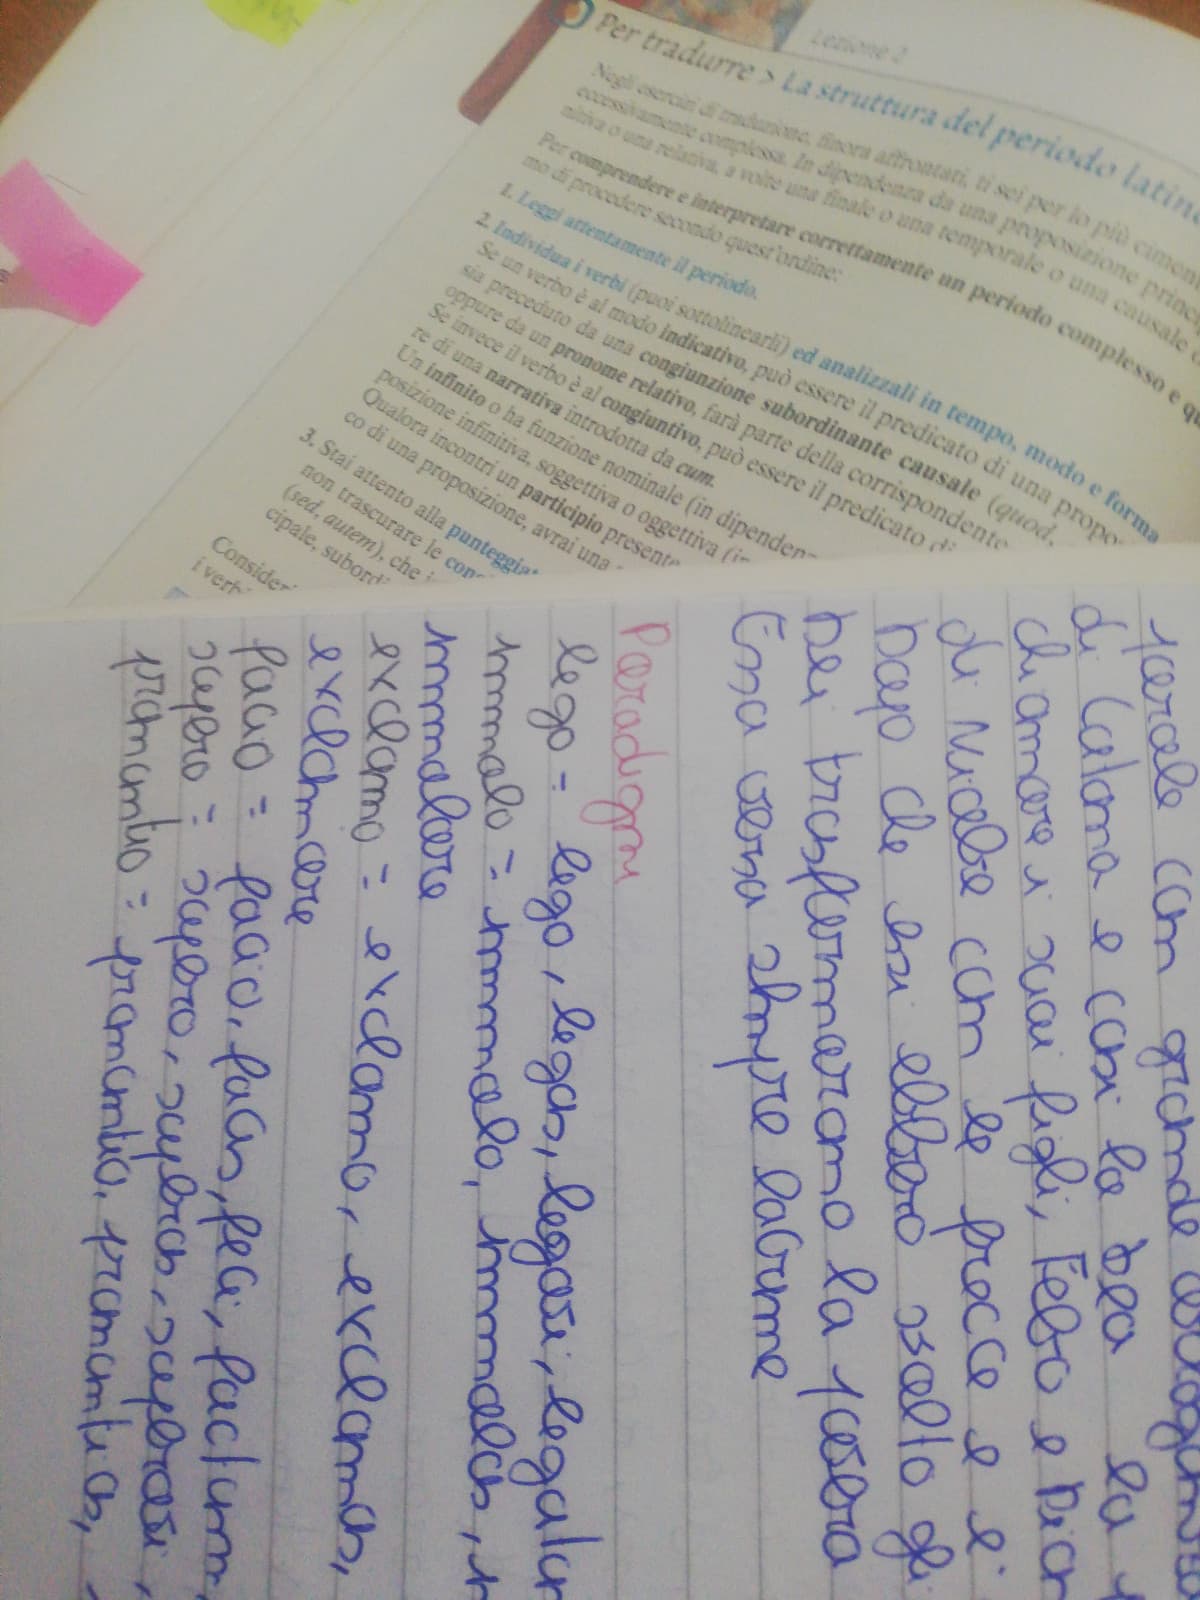 Lezione 2
Per tradurre > La struttura del periodo latin
Negli esercizi di traduzione, finora affrontati, ti sei per lo più cimen
eccessivamente complessa. In dipendenza da una proposizione princ
nitiva o una relativa, a volte una finale o una temporale o una causale
Per comprendere e interpretare correttamente un periodo complesso e
mo di procedere secondo quest'ordine:
1. Leggi attentamente il periodo.
2. Individua i verbi (puoi sottolinearli) ed analizzali in tempo, modo e forma
Se un verbo è al modo indicativo, può essere il predicato di una propo
sia preceduto da una congiunzione subordinante causale (quod,
oppure da un pronome relativo, farà parte della corrispondente
Se invece il verbo è al congiuntivo, può essere il predicato di
re di una narrativa introdotta da cum.
Un infinito o ha funzione nominale (in dipenden
posizione infinitiva, soggettiva o oggettiva (in
Qualora incontri un participio presente
co di una proposizione, avrai una
3. Stai attento alla punteggiat
non trascurare le con
(sed, autem), che i
cipale, subordi
Consider
i verbi
con grande
di Latona e così la dea la
chiamare i suoi figli, Febo e Dian
di Niobe con le frecce e i
Dopo che essi ebbero scelto gli
Dei trasformarono la povera
Essa versa sempre lacrime
Paradigmi
lego = lego, legas, legavi, legatum
immolo = immolo, immolas, i
immolare
exclamo = exclamo, exclamas,
exclamare
facio = facio, facis, feci, factum,
= 
pronuntio = pronuntio, pronuntias,